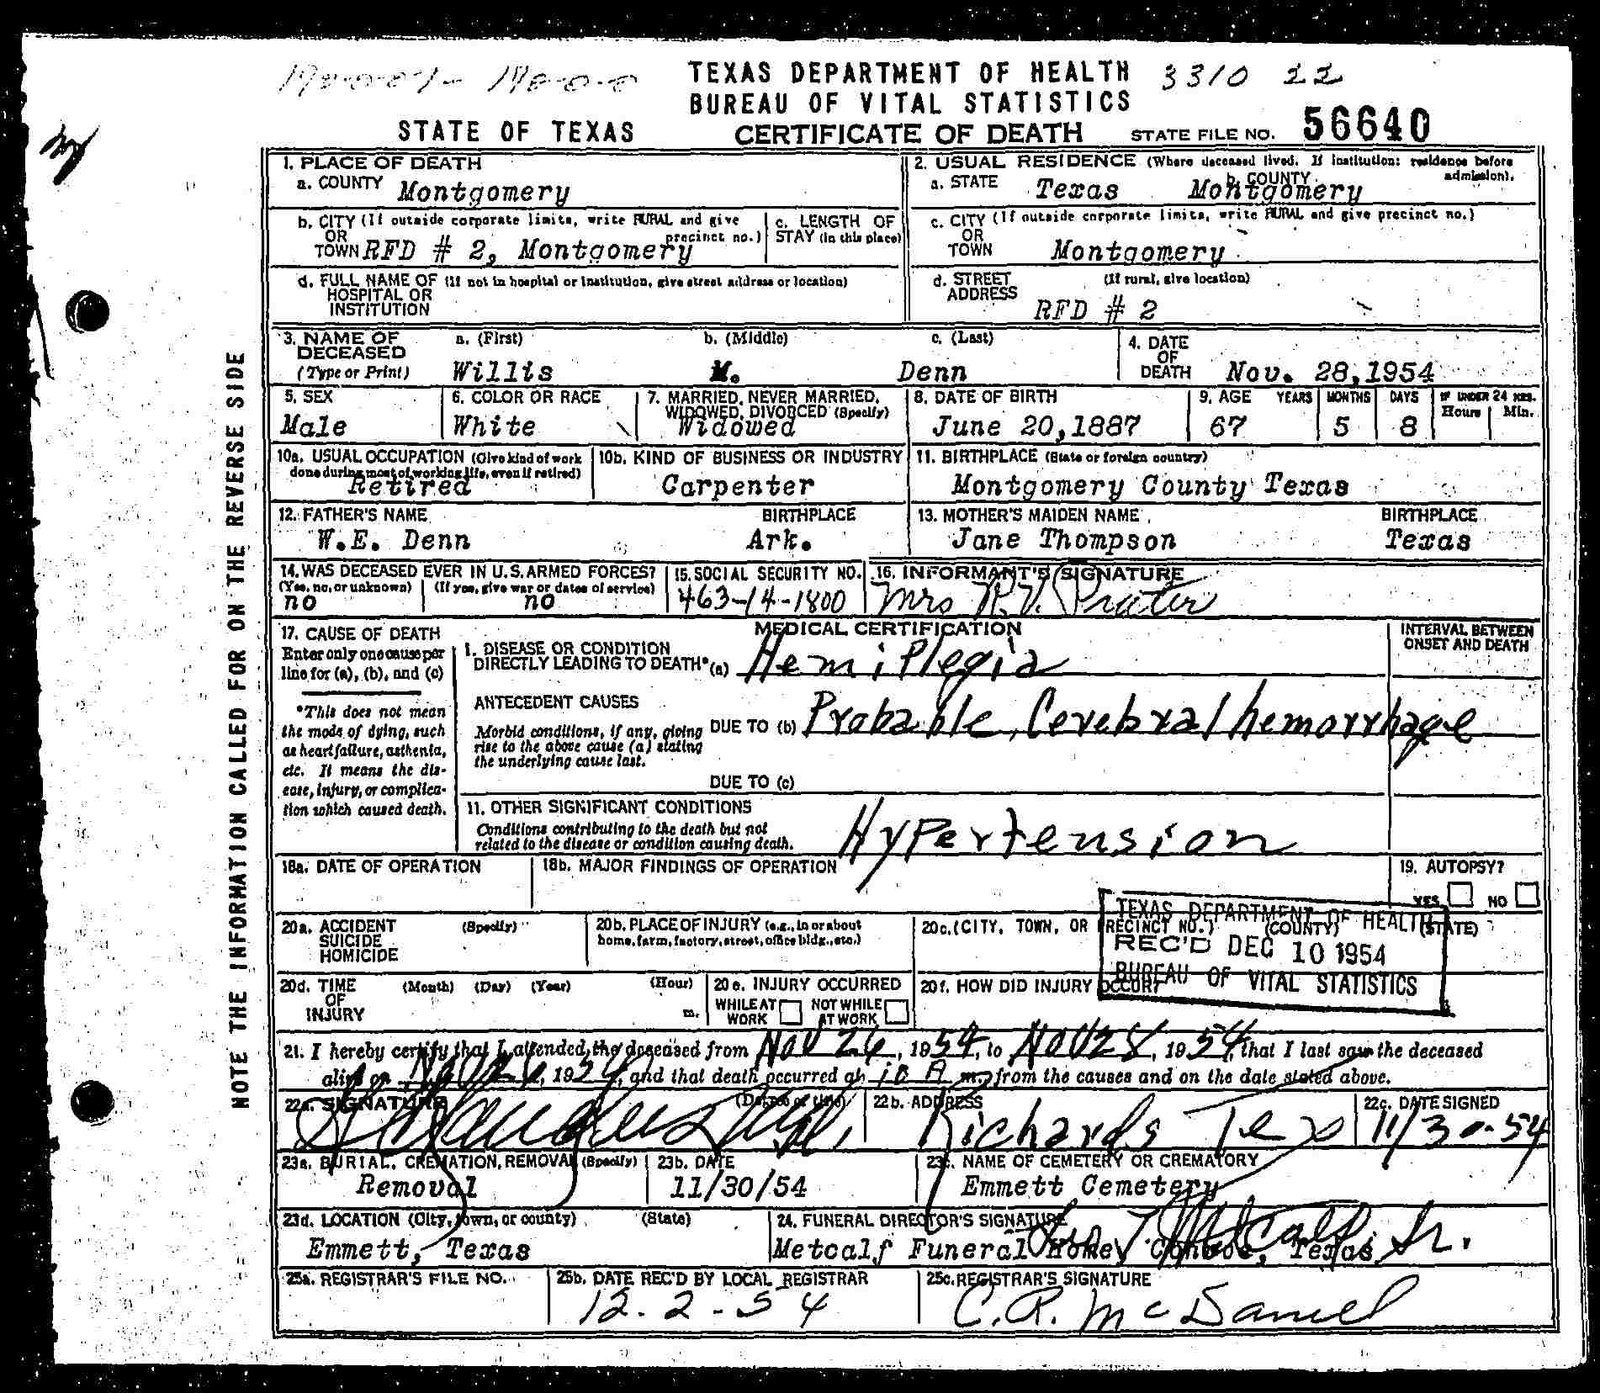 TEXAS DEPARTMENT OF HEALTH 3310 22
BUREAU OF VITAL STATISTICS
STATE OF TEXAS CERTIFICATE OF DEATH STATE FILE NO. 56640
NOTE THE INFORMATION CALLED FOR ON THE REVERSE SIDE
1. PLACE OF DEATH
a. COUNTY Montgomery
2. USUAL RESIDENCE (Where deceased lived. If institution: residence before admission).
a. STATE Texas b. COUNTY Montgomery
b. CITY (If outside corporate limits, write RURAL and give precinct no.)
OR
TOWN RFD # 2, Montgomery
c. LENGTH OF
STAY (in this place)
c. CITY (If outside corporate limits, write RURAL and give precinct no.)
OR
TOWN Montgomery
d. FULL NAME OF (If not in hospital or institution, give street address or location)
HOSPITAL OR
INSTITUTION
d. STREET (If rural, give location)
ADDRESS RFD # 2
3. NAME OF a. (First) b. (Middle) c. (Last)
DECEASED
(Type or Print) Willis M. Denn
4. DATE
OF
DEATH Nov. 28,1954
5. SEX
Male
6. COLOR OR RACE
White
7. MARRIED, NEVER MARRIED,
WIDOWED, DIVORCED (Specify)
Widowed
8. DATE OF BIRTH
June 20,1887
9. AGE YEARS MONTHS DAYS IF UNDER 24 HRS.
Hours Min.
67 5 8
10a. USUAL OCCUPATION (Give kind of work
done during most of working life, even if retired)
Retired
10b. KIND OF BUSINESS OR INDUSTRY
Carpenter
11. BIRTHPLACE (State or foreign country)
Montgomery County Texas
12. FATHER'S NAME BIRTHPLACE
W.E. Denn Ark.
13. MOTHER'S MAIDEN NAME BIRTHPLACE
Jane Thompson Texas
14. WAS DECEASED EVER IN U.S. ARMED FORCES?
(Yes, no, or unknown) (If yes, give war or dates of service)
no no
15. SOCIAL SECURITY NO.
463-14-1800
16. INFORMANT'S SIGNATURE
Mrs R.V. Prater
17. CAUSE OF DEATH
Enter only one cause per
line for (a), (b), and (c)
*This does not mean
the mode of dying, such
as heart failure, asthenia,
etc. It means the dis-
ease, injury, or complica-
tion which caused death.
MEDICAL CERTIFICATION
INTERVAL BETWEEN
ONSET AND DEATH
I. DISEASE OR CONDITION
DIRECTLY LEADING TO DEATH* (a) Hemiplegia
ANTECEDENT CAUSES
Morbid conditions, if any, giving
rise to the above cause (a) stating
the underlying cause last.
DUE TO (b) Probable Cerebral hemorrhage
DUE TO (c)
11. OTHER SIGNIFICANT CONDITIONS
Conditions contributing to the death but not
related to the disease or condition causing death.
Hypertension
18a. DATE OF OPERATION
18b. MAJOR FINDINGS OF OPERATION
19. AUTOPSY?
YES NO
20a. ACCIDENT (Specify)
SUICIDE
HOMICIDE
20b. PLACE OF INJURY (e.g., in or about
home, farm, factory, street, office bldg., etc.)
20c. (CITY, TOWN, OR PRECINCT NO.) (COUNTY) (STATE)
TEXAS DEPARTMENT OF HEALTH
REC'D DEC 10 1954
BUREAU OF VITAL STATISTICS
20d. TIME (Month) (Day) (Year) (Hour)
OF
INJURY m.
20e. INJURY OCCURRED
WHILE AT WORK NOT WHILE AT WORK
20f. HOW DID INJURY OCCUR?
21. I hereby certify that I attended the deceased from Nov 26, 1954, to Nov 28, 1954, that I last saw the deceased
alive on Nov 26, 1954, and that death occurred at 10 A m., from the causes and on the date stated above.
22a. SIGNATURE (Degree or title)
22b. ADDRESS
Richards Texas
22c. DATE SIGNED
11/30-54
23a. BURIAL, CREMATION, REMOVAL (Specify)
Removal
23b. DATE
11/30/54
23c. NAME OF CEMETERY OR CREMATORY
Emmett Cemetery
23d. LOCATION (City, town, or county) (State)
Emmett, Texas
24. FUNERAL DIRECTOR'S SIGNATURE
Metcalf Funeral Home, Conroe, Texas
Metcalf, Sr.
25a. REGISTRAR'S FILE NO.
25b. DATE REC'D BY LOCAL REGISTRAR
12-2-54
25c. REGISTRAR'S SIGNATURE
C.R. McDaniel